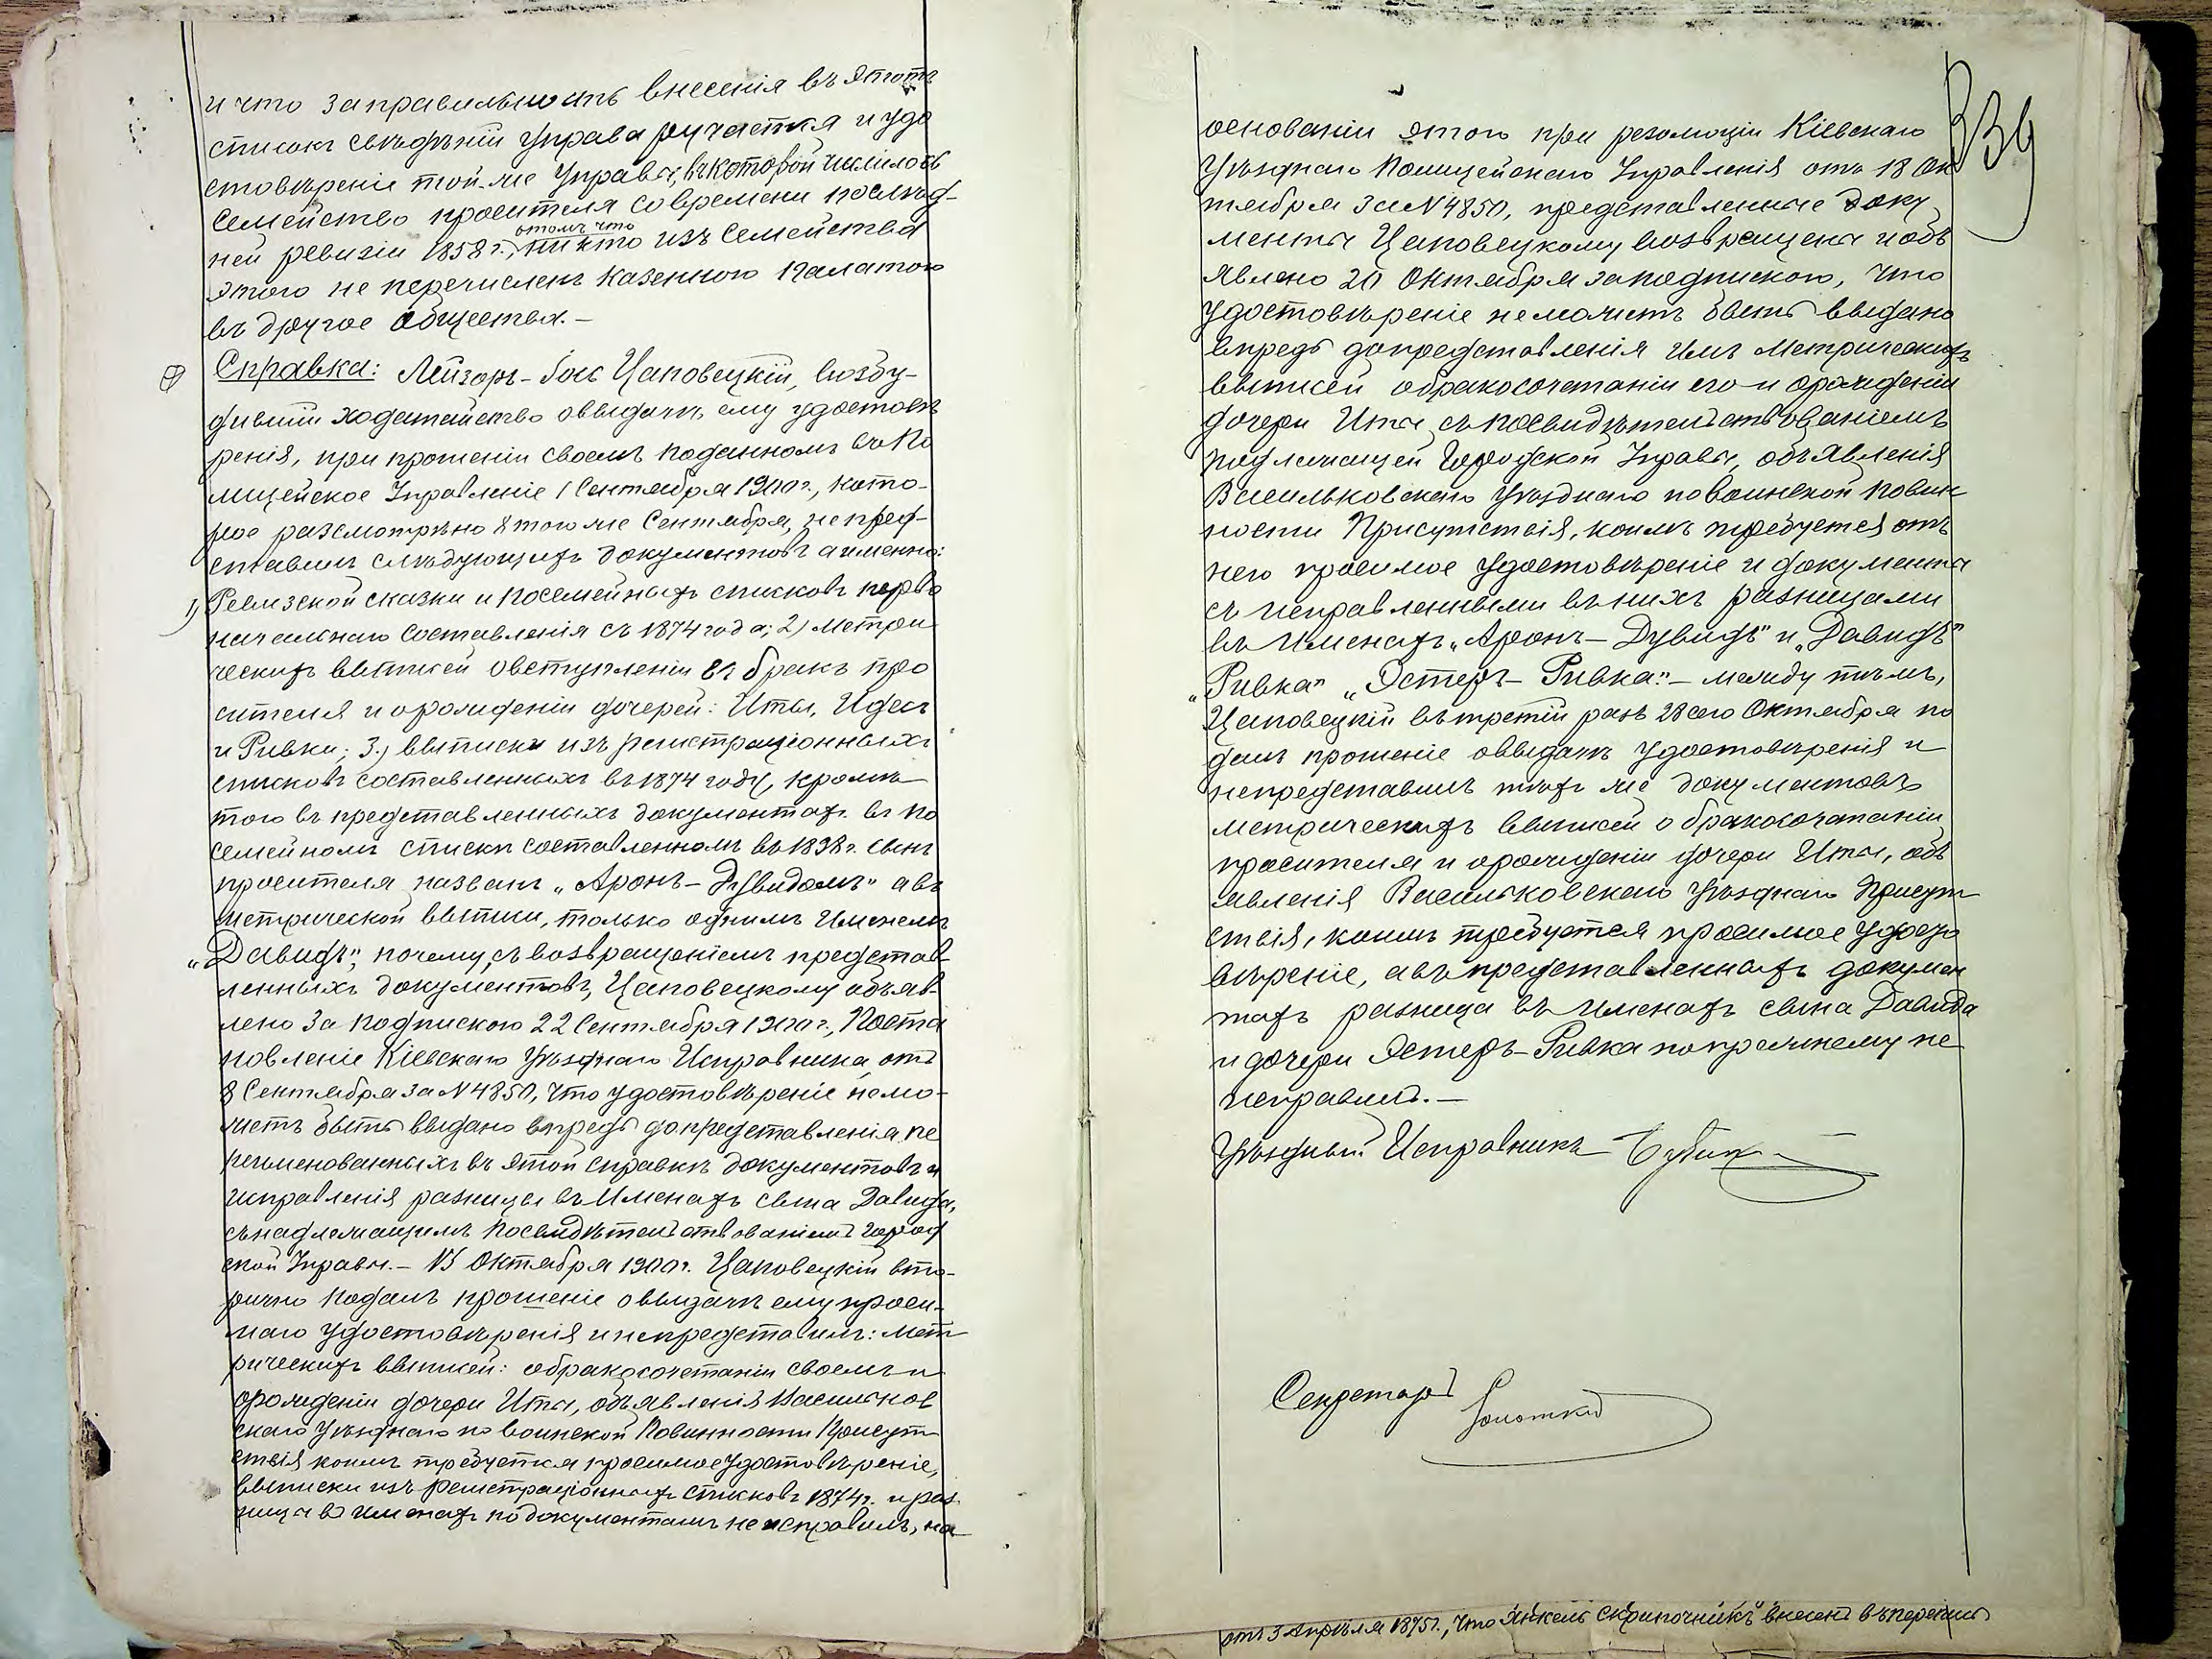 и что за правильность внесенія въ этотъ
списокъ свѣдѣній Управа ручается и удо
стовѣреніе той-же Управы, въ которой числилось
семейство просителя со времени послѣд-
ней ревизіи 1858 г., о томъ что никто изъ семейства
этого не перечисленъ Казенною Палатою
въ другое общества.–
Справка: Лейзоръ-Бось Цаповецкій, возбу-
дившій ходатайство о выдачѣ ему удостовѣ
ренія, при прошеніи своемъ поданномъ въ По
лицейское Управленіе 1 Сентября 1900 г., кото-
рое разсмотрѣно 8 того же Сентября, не пред-
ставилъ слѣдующихъ документовъ а именно:
1) Ревизской сказки и посемейныхъ списковъ перво
начальнаго составленія съ 1874 года; 2) Метри
ческихъ выписей о вступленіи въ бракъ про
сителя и о рожденіи дочерей: Иты, Идесы
и Ривки; 3) выписки изъ регистраціонныхъ
списковъ составленныхъ въ 1874 году, кромѣ
того въ представленныхъ документахъ въ по
семейномъ спискѣ составленномъ въ 1898 г. сынъ
просителя названъ „Аронъ-Дувидомъ" а въ
метрической выписи, только однимъ именемъ
„Давидъ", почему, съ возвращеніемъ представ
ленныхъ документовъ, Цаповецкому объяв-
лено за подпискою 22 Сентября 1900 г., Поста
новленіе Кіевскаго Уѣзднаго Исправника отъ
8 Сентября за N 4850, что удостовѣреніе не мо-
жетъ быть выдано впредь до представленія пе
реименованныхъ въ этой справкѣ документовъ и
исправленія разницы въ именахъ сына Давида,
съ надлежащимъ посвидѣтельствованіемъ Город
ской Управы.– 15 Октября 1900 г. Цаповецкій вто-
рично подалъ прошеніе о выдачѣ ему проси-
маго удостовѣренія и не представилъ: мет
рическихъ выписей: о бракосочетаніи своемъ и
о рожденіи дочери Иты, объявленія Васильков
скаго Уѣзднаго по воинской Повинности Присут
ствія коимъ требуется просимое удостовѣреніе,
выписки изъ регистраціонныхъ списковъ 1874 г. и раз
ницы въ именахъ по документамъ не исправилъ, на
339
основаніи этого при резолюціи Кіевскаго
Уѣзднаго Полицейскаго Управленія отъ 18 Ок
тября за N 4850, представленные доку
менты Цаповецкому возвращены и объ
явлено 20 Октября за подпискою, что
удостовѣреніе не можетъ быть выдано
впредь до представленія имъ Метрическихъ
выписей о бракосочетаніи его и о рожденіи
дочери Иты съ посвидѣтельствованіемъ
подлежащей Городской Управы, объявленія
Васильковскаго Уѣзднаго по воинской повин
ности Присутствія, коимъ требуется отъ
него просимое удостовѣреніе и документы
съ исправленными въ нихъ разницами
въ именахъ „Аронъ-Дувидъ" и „Давидъ"
„Ривка" „Эстеръ-Ривка".– между тѣмъ,
Цаповецкій въ третій разъ 28 сего Октября по
далъ прошеніе о выдачѣ удостовѣренія и
не представилъ тѣхъ же документовъ
метрическихъ выписей о бракосочетаніи
просителя и о рожденіи дочери Иты, объ
явленія Васильковскаго Уѣзднаго Присут
ствія, коимъ требуется просимое удосто
вѣреніе, а въ представленныхъ докумен
тахъ разница въ именахъ сына Давида
и дочери Эстеръ-Ривка по прежнему не
исправилъ.–
Уѣздный Исправникъ
Секретарь
отъ 3 Апрѣля 1875 г., что „Янкель Скрипочникъ" внесенъ въ перепись